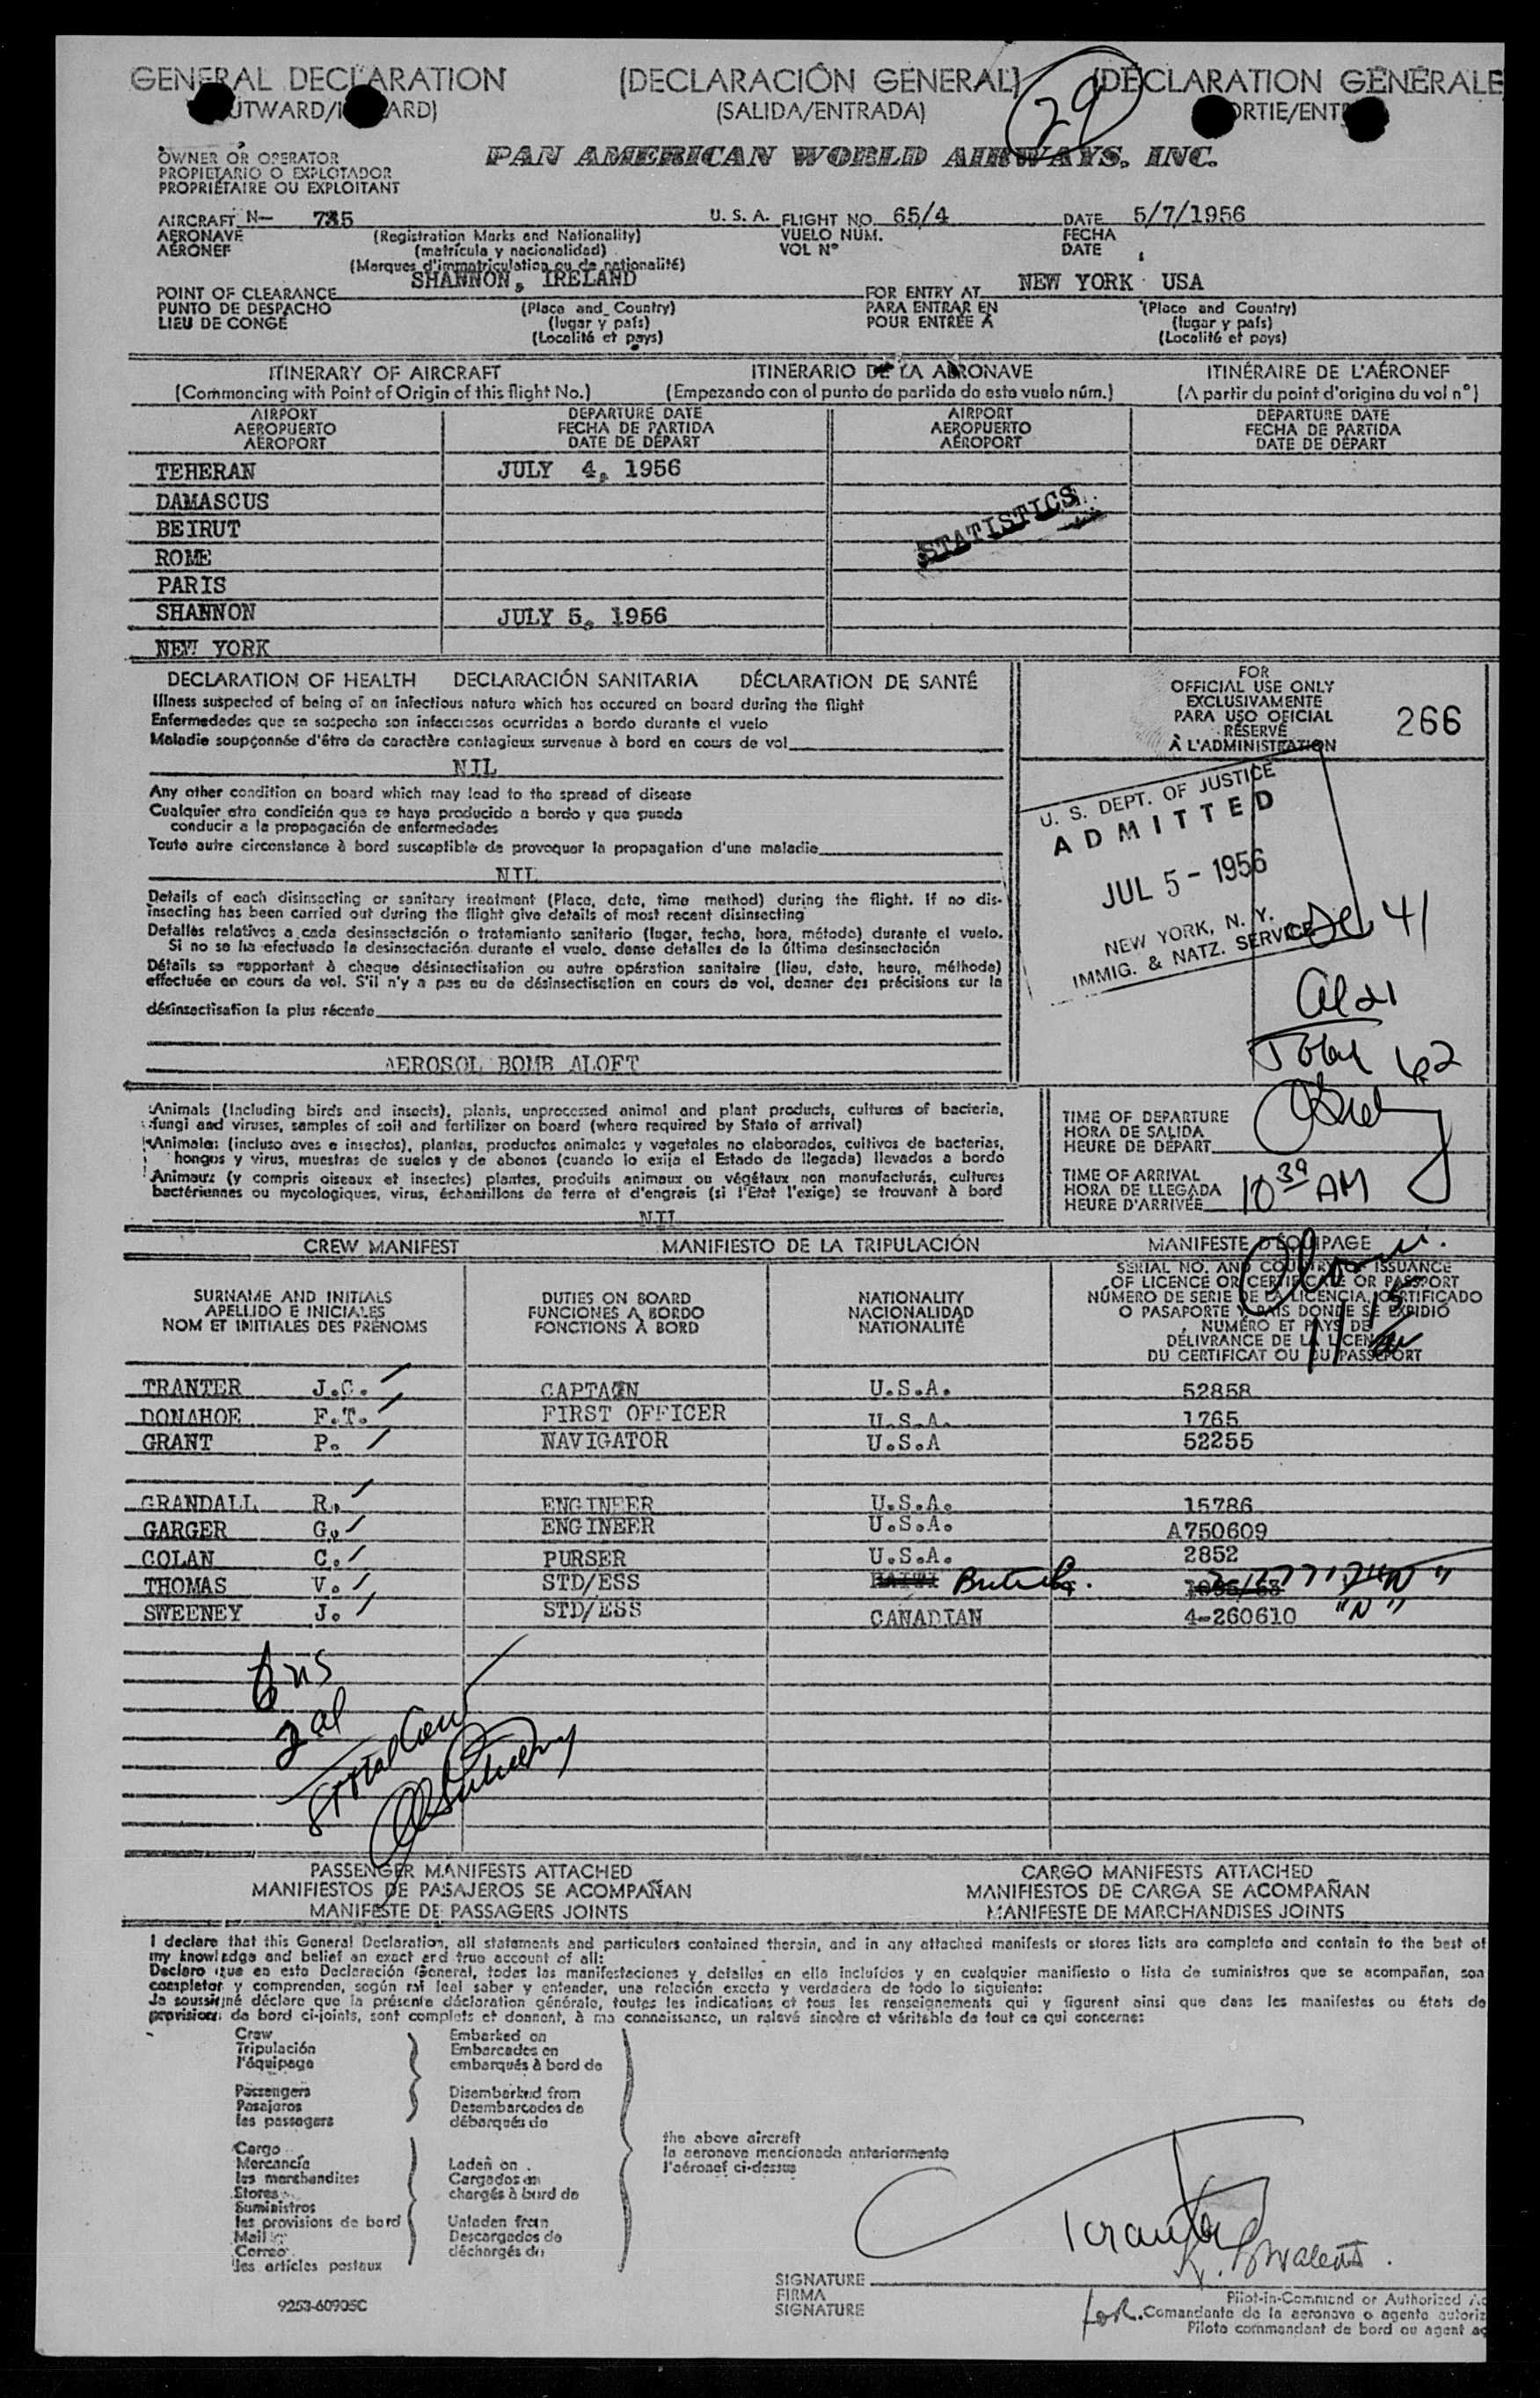 GENERAL DECLARATION (DECLARACIÓN GENERAL) (DÉCLARATION GÉNÉRALE
(SALIDA/ENTRADA)
29
OWNER OR OPERATOR
PROPIETARIO O EXPLOTADOR
PROPRIÉTAIRE OU EXPLOITANT
PAN AMERICAN WORLD AIRWAYS, INC.
AIRCRAFT N- 735 U. S. A. FLIGHT NO. 65/4 DATE 5/7/1956
AERONAVE (Registration Marks and Nationality) VUELO NÚM. FECHA
AÉRONEF (matrícula y nacionalidad) VOL N° DATE
(Marques d'immatriculation ou de nationalité)
SHANNON, IRELAND NEW YORK USA
POINT OF CLEARANCE (Place and Country) FOR ENTRY AT (Place and Country)
PUNTO DE DESPACHO (lugar y país) PARA ENTRAR EN (lugar y país)
LIEU DE CONGÉ (Localité et pays) POUR ENTRÉE À (Localité et pays)
ITINERARY OF AIRCRAFT ITINERARIO DE LA AERONAVE ITINÉRAIRE DE L'AÉRONEF
(Commencing with Point of Origin of this flight No.) (Empezando con el punto de partida de este vuelo núm.) (A partir du point d'origine du vol n°)
AIRPORT DEPARTURE DATE AIRPORT DEPARTURE DATE
AEROPUERTO FECHA DE PARTIDA AEROPUERTO FECHA DE PARTIDA
AÉROPORT DATE DE DÉPART AÉROPORT DATE DE DÉPART
TEHERAN JULY 4, 1956
DAMASCUS
STATISTICS
BEIRUT
ROME
PARIS
SHANNON JULY 5, 1956
NEW YORK
DECLARATION OF HEALTH DECLARACIÓN SANITARIA DÉCLARATION DE SANTÉ
Illness suspected of being of an infectious nature which has occured on board during the flight
Enfermedades que se sospecha son infecciosas ocurridas a bordo durante el vuelo
Maladie soupçonnée d'être de caractère contagieux survenue à bord en cours de vol
NIL
Any other condition on board which may lead to the spread of disease
Cualquier otra condición que se haya producido a bordo y que pueda
conducir a la propagación de enfermedades
Toute autre circonstance à bord susceptible de provoquer la propagation d'une maladie
NIL
Details of each disinsecting or sanitary treatment (Place, date, time method) during the flight. If no dis-
insecting has been carried out during the flight give details of most recent disinsecting
Detalles relativos a cada desinsectación o tratamiento sanitario (lugar, fecha, hora, método) durante el vuelo.
Si no se ha efectuado la desinsectación durante el vuelo, dense detalles de la última desinsectación
Détails se rapportant à chaque désinsectisation ou autre opération sanitaire (lieu, date, heure, méthode)
effectuée en cours de vol. S'il n'y a pas eu de désinsectisation en cours de vol, donner des précisions sur la
désinsectisation la plus récente
AEROSOL BOMB ALOFT
FOR
OFFICIAL USE ONLY
EXCLUSIVAMENTE
PARA USO OFICIAL
RÉSERVÉ
À L'ADMINISTRATION
266
U. S. DEPT. OF JUSTICE
ADMITTED
JUL 5 - 1956
NEW YORK, N. Y.
IMMIG. & NATZ. SERVICE
41
Total 62
Animals (Including birds and insects), plants, unprocessed animal and plant products, cultures of bacteria,
fungi and viruses, samples of soil and fertilizer on board (where required by State of arrival)
Animales: (incluso aves e insectos), plantas, productos animales y vegetales no elaborados, cultivos de bacterias,
hongos y virus, muestras de suelos y de abonos (cuando lo exija el Estado de llegada) llevados a bordo
Animaux: (y compris oiseaux et insectes) plantes, produits animaux ou végétaux non manufacturés, cultures
bactériennes ou mycologiques, virus, échantillons de terre et d'engrais (si l'Etat l'exige) se trouvant à bord
NIL
TIME OF DEPARTURE
HORA DE SALIDA
HEURE DE DÉPART
TIME OF ARRIVAL
HORA DE LLEGADA
HEURE D'ARRIVÉE
10 39 AM
CREW MANIFEST MANIFIESTO DE LA TRIPULACIÓN MANIFESTE D'ÉQUIPAGE
SURNAME AND INITIALS
APELLIDO E INICIALES
NOM ET INITIALES DES PRÉNOMS
DUTIES ON BOARD
FUNCIONES A BORDO
FONCTIONS À BORD
NATIONALITY
NACIONALIDAD
NATIONALITÉ
SERIAL NO. AND COUNTRY OF ISSUANCE
OF LICENCE OR CERTIFICATE OR PASSPORT
NÚMERO DE SERIE DE LA LICENCIA, CERTIFICADO
O PASAPORTE Y PAÍS DONDE SE EXPIDIÓ
NUMÉRO ET PAYS DE
DÉLIVRANCE DE LA LICENCE
DU CERTIFICAT OU DU PASSEPORT
TRANTER J.C. CAPTAIN U.S.A. 52858
DONAHOE F.T. FIRST OFFICER U.S.A. 1765
GRANT P. NAVIGATOR U.S.A 52255
GRANDALL R. ENGINEER U.S.A. 15786
GARGER G. ENGINEER U.S.A. A750609
COLAN C. PURSER U.S.A. 2852
THOMAS V. STD/ESS British "N"
SWEENEY J. STD/ESS CANADIAN 4-260610 "N"
6 us
2 al
8 Total Crew
PASSENGER MANIFESTS ATTACHED CARGO MANIFESTS ATTACHED
MANIFIESTOS DE PASAJEROS SE ACOMPAÑAN MANIFIESTOS DE CARGA SE ACOMPAÑAN
MANIFESTE DE PASSAGERS JOINTS MANIFESTE DE MARCHANDISES JOINTS
I declare that this General Declaration, all statements and particulars contained therein, and in any attached manifests or stores lists are complete and contain to the best of
my knowledge and belief an exact and true account of all:
Declaro que en esta Declaración General, todas las manifestaciones y detalles en ella incluídos y en cualquier manifiesto o lista de suministros que se acompañan, son
completos y comprenden, según mi leal saber y entender, una relación exacta y verdadera de todo lo siguiente:
Je soussigné déclare que la présente déclaration générale, toutes les indications et tous les renseignements qui y figurent ainsi que dans les manifestes ou états de
provisions de bord ci-joints, sont complets et donnent, à ma connaissance, un relevé sincère et véritable de tout ce qui concerne:
Crew Embarked on
Tripulación Embarcados en
l'équipage embarqués à bord de
Passengers Disembarked from
Pasajeros Desembarcados de
les passagers débarqués de
Cargo
Mercancía Laden on
les marchandises Cargados en
Stores chargés à bord de
Suministros
les provisions de bord Unladen from
Mail Descargados de
Correo déchargés de
les articles postaux
the above aircraft
la aeronave mencionada anteriormente
l'aéronef ci-dessus
Tranter
SIGNATURE
FIRMA
SIGNATURE
for
Pilot-in-Command or Authorized
Comandante de la aeronave o agente
Pilote commandant de bord ou agent
9253-60905C